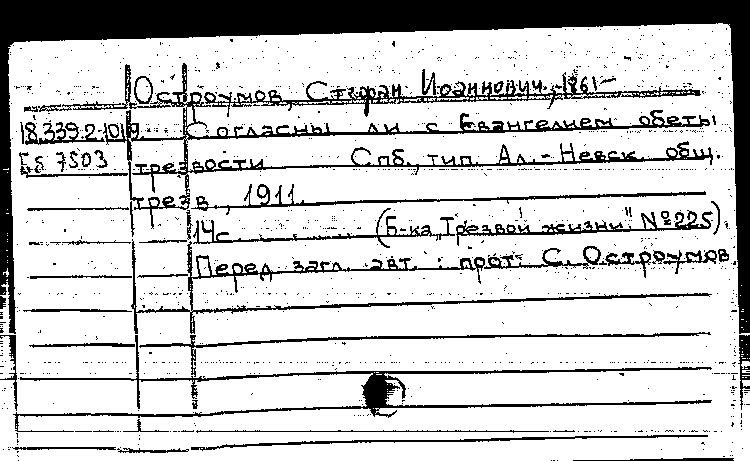 Остроумов, Стефан Иоаннович, 1861-
18.339.2.1019 Согласны ли с Евангелием обеты
Бб 7503 трезвости Спб., тип. Ал.-Невск. общ.
трезв., 1911.
14с. (Б-ка „Трезвой жизни" №225).
Перед загл. авт.: прот. С. Остроумов.